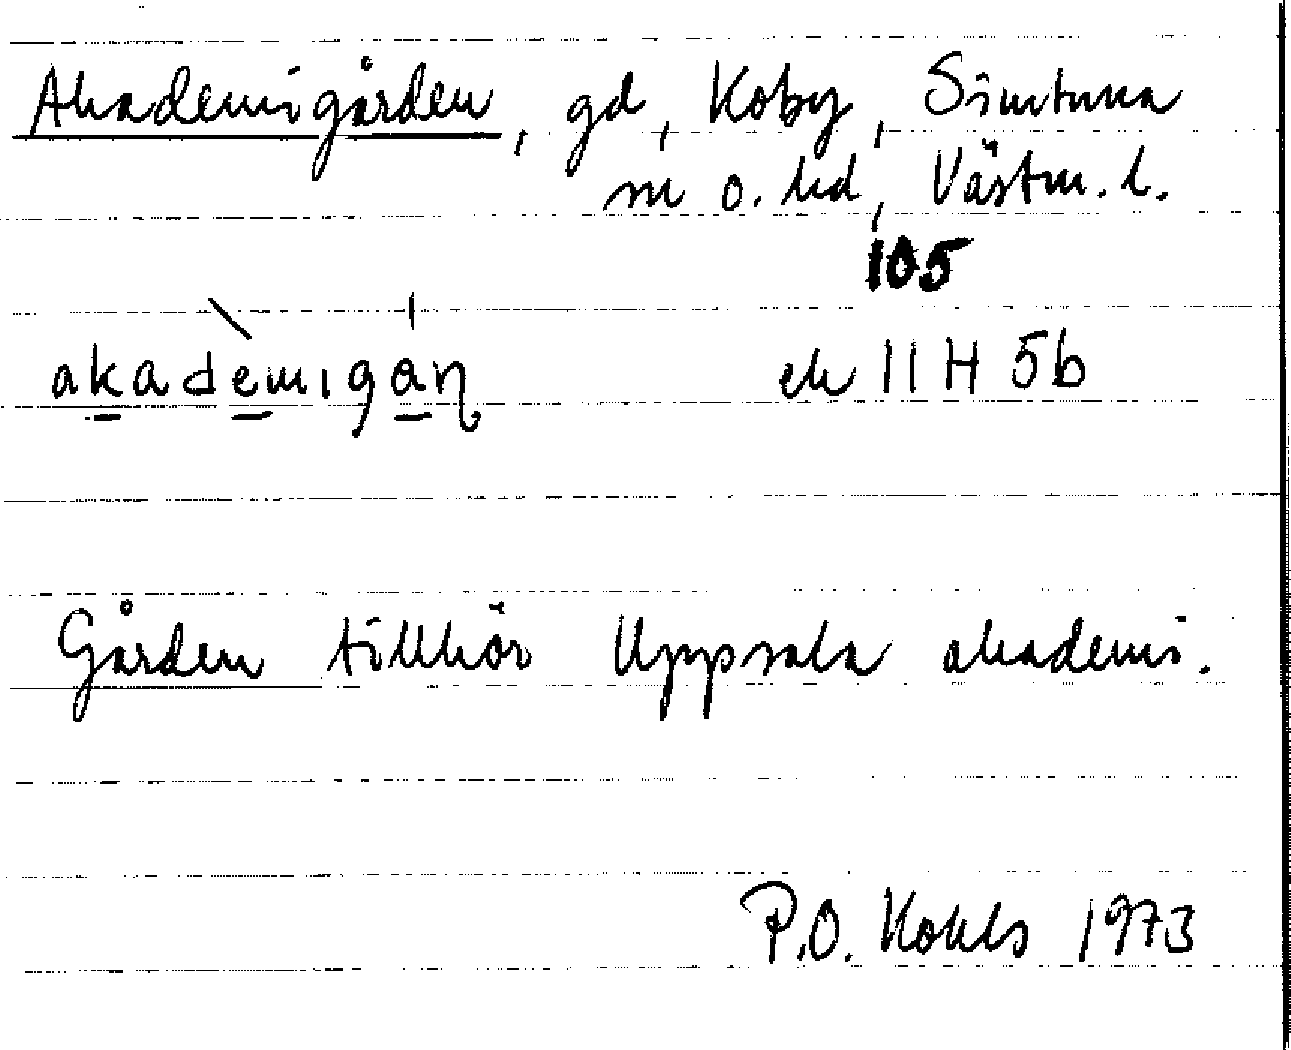 Akademigården, gd, Koby, Simtuna
sn o. hd, Västm. l.
105
akademigaɳ
ek 11 H 5b
Gården tillhör Uppsala akademi.
P.O. Kohls 1973